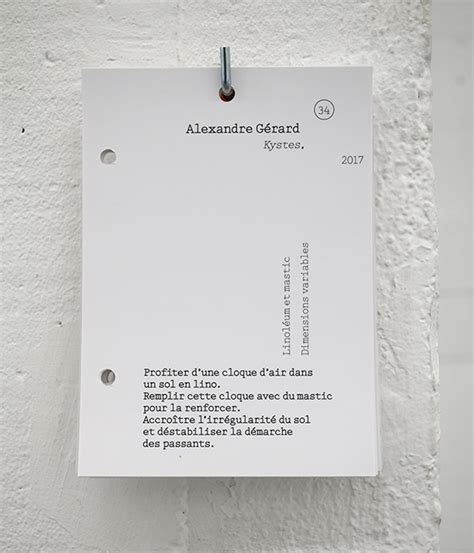 34
Alexandre Gérard
Kystes.
2017
Linoléum et mastic
Dimensions variables
Profiter d'une cloque d'air dans
un sol en lino.
Remplir cette cloque avec du mastic
pour la renforcer.
Accroître l'irrégularité du sol
et déstabiliser la démarche
des passants.